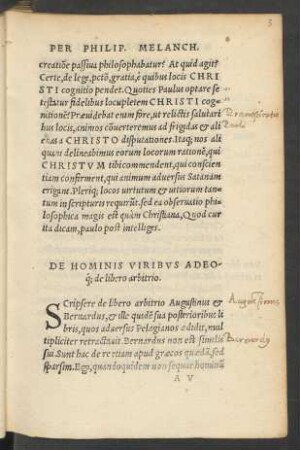 PER PHILIP. MELANCH.
creatiõe passiua philosophabatur? At quid agit?
Certe, de lege, pctõ, gratia, e quibus locis CHRI
STI cognitio pendet. Quoties Paulus optare se
testatur fidelibus locupletem CHRISTI cog-
nitionẽ? Præuidebat enim fore, ut relictis salutari
bus locis, animos cõuerteremus ad frigidas & ali
enas a CHRISTO disputationes. Itaq; nos ali
quam delineabimus eorum locorum rationẽ, qui
CHRISTVM tibi commendent, qui conscien
tiam confirment, qui animum aduersus Satanam
erigant. Pleriq; locos uirtutum & uitiorum tan-
tum in scripturis requirũt. sed ea obseruatio phi-
losophica magis est quàm Christiana, Quod cur
ita dicam, paulo post intelliges.
DE HOMINIS VIRIBVS ADEO-
q; de libero arbitrio.
SCripsere de libero arbitrio Augustinus &
Bernardus, & ille quidẽ sua posterioribus li
bris, quos aduersus Pelagianos edidit, mul
tipliciter retractauit. Bernardus non est similis
sui. Sunt hac de re etiam apud græcos quædã, sed
sparsim. Ego, quandoquidem non sequar hominũ
A V
Augustinus
Bernardus